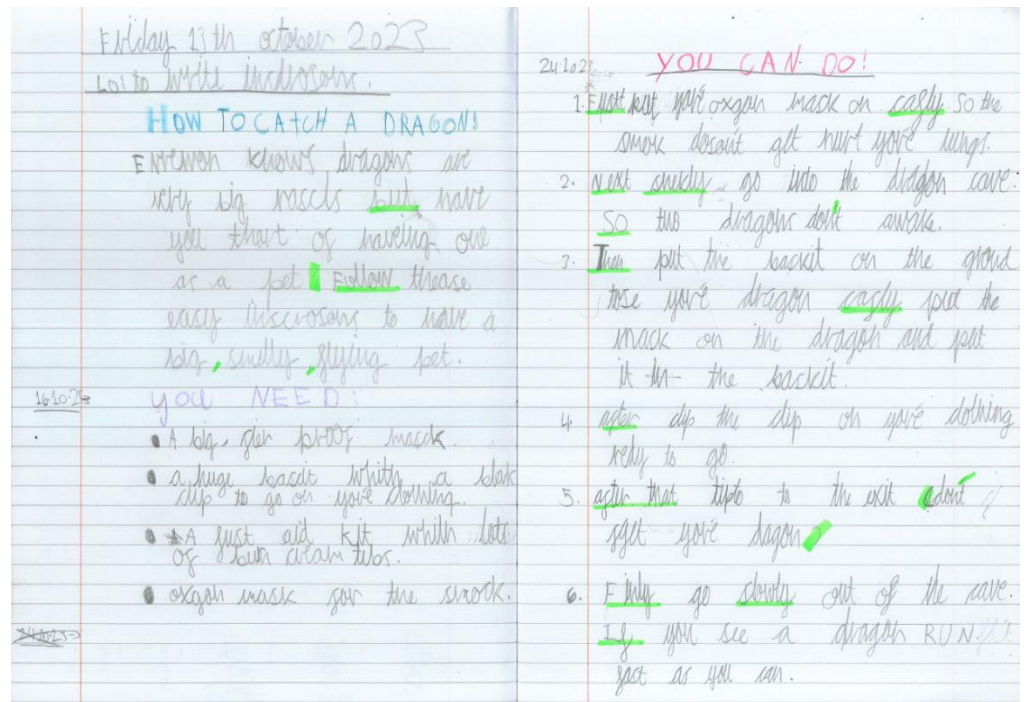 Friday 13th october 2023
LOI to write inscrosons.
HOW TO CATCH A DRAGON!
Evremon knows dragons are
very big rascls but have
you thort of haveing one
as a pet Follow thease
easy inscrosons to have a
big, smelly, flying pet.
16.10.23
you NEED:
A big, fier proof mask.
a huge bascit whith a blak
clip to go on yore clothing.
A fust aid kit whith lots
of burn cream tubs.
oxgon mask for the smock.
24.10.23
24.10.23
YOU CAN DO!
1. Fust put yore oxgon mack on cafly. So the
smok dosan't get hurt yore lungs.
2. Next go into the dradgon cave.
So the dragons don't awake.
3. Then put the backit on the grond
tose yore dragon cafly put the
mack on the dragon and put
it in the backit.
4. after clip the clip on yore clothing
redy to go.
5. after that tipto to the exit dont
fget yore dagon
6. Finly go slowly out of the cave.
If you see a dragon RUN
fast as you can.